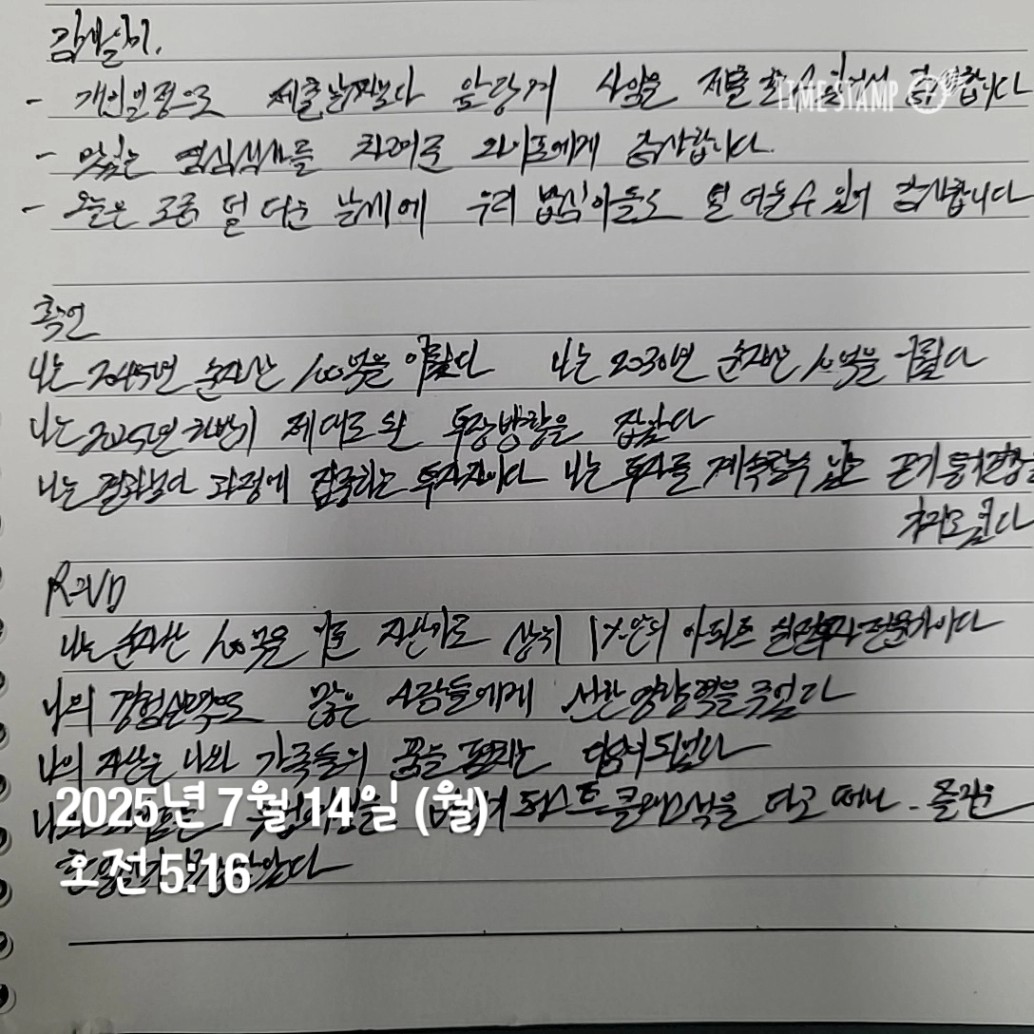 감사일기.
- 개인일정으로 제출날짜보다 앞당겨 사임을 제출 할 수 있어서 감사합니다
TIMESTAMP
- 맛있는 점심식사를 차려준 와이프에게 감사합니다.
- 오늘은 조금 덜 더운 날씨에 우리 아들도 덜 더울 수 있어 감사합니다
확언
나는 2045년 순자산 100억을 이뤘다 나는 2030년 순자산 10억을 이뤘다
나는 2025년 하반기 제대로 된 투자방향을 잡았다
나는 결과보다 과정에 집중하는 투자자이다 나는 투자를 계속할수 있는
R=VD
나는 순자산 100억을 이룬 자산가로 상위 1%안의 아파트 실전투자전문가이다
나의 경험산맥으로 많은 사람들에게 선한 영향력을 주었다
나의 자산은 나와 가족들의 꿈을 펼치는 되었다
퍼스트클래스석을 타고 떠나 몰디브
2025년 7월 14일 (월)
오전 5:16